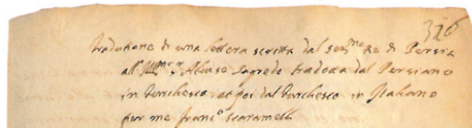 316
Traduzione di una lettera scritta dal ser.mo Re di Persia
all' Ill.mo Sr Alvise Sagredo tradotta dal Persiano
in turchesco et poi dal turchesco in Italiano
per me franc.o scaramelli